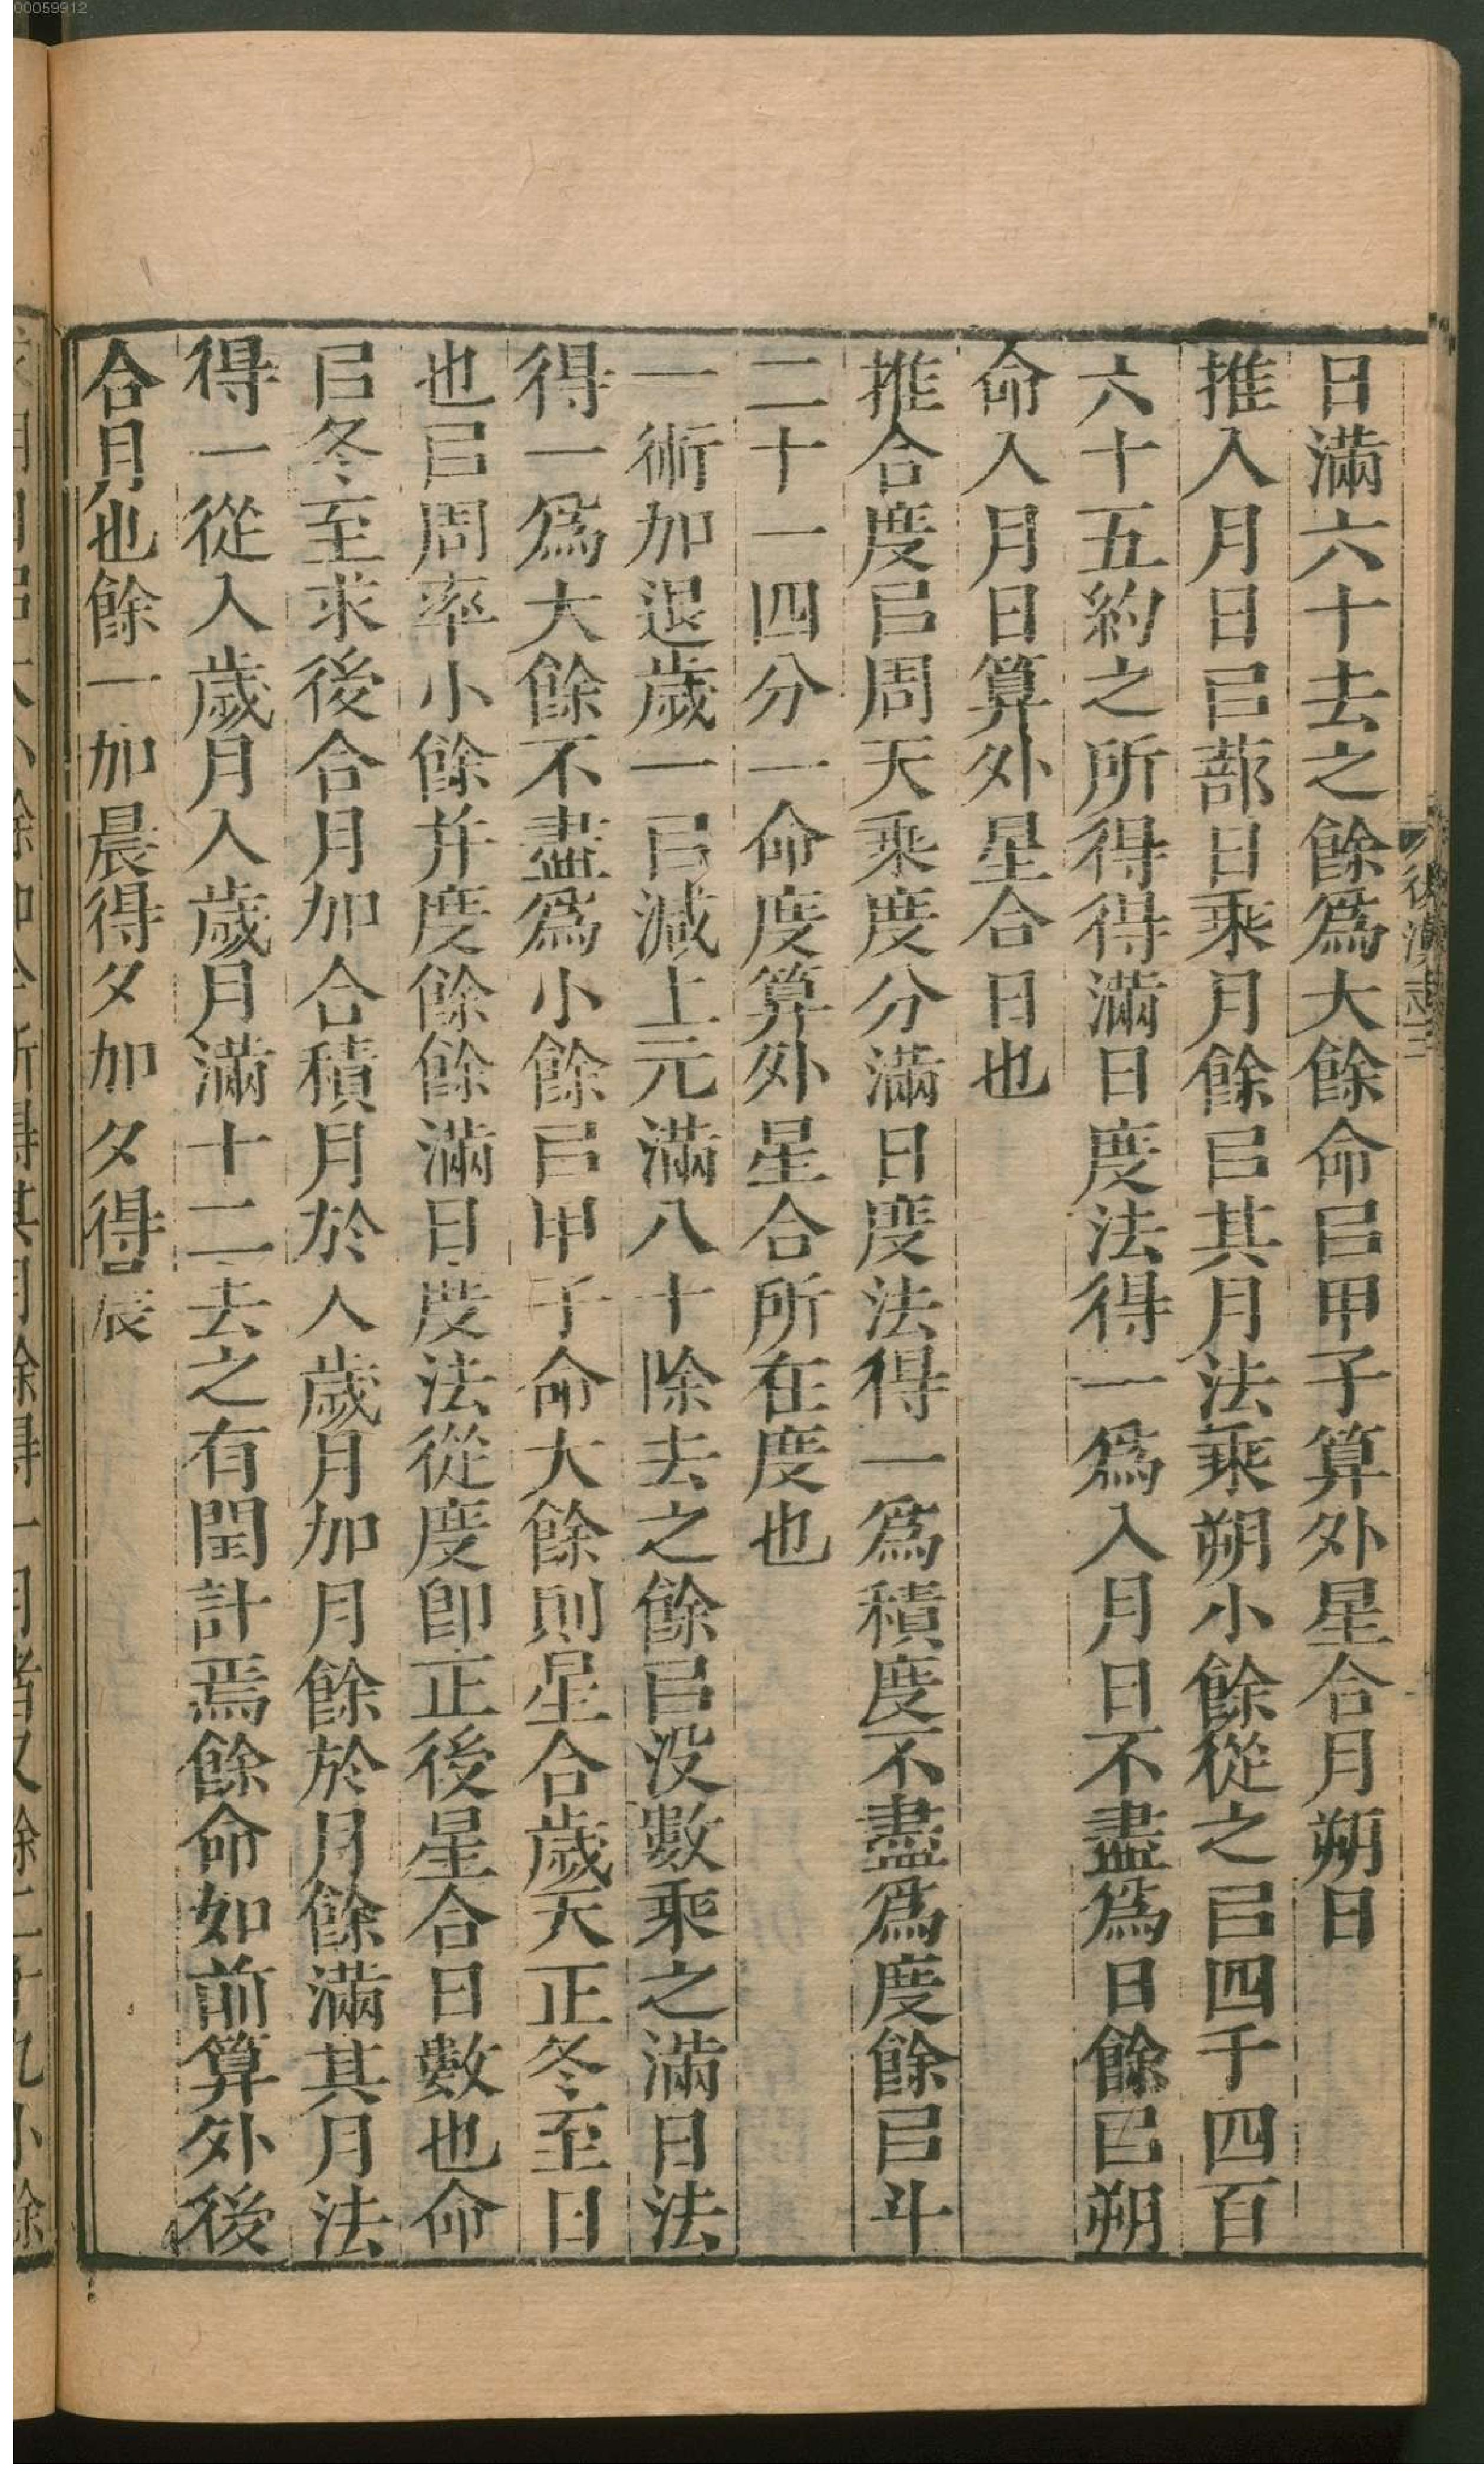 00059912
日滿六十去之餘爲大餘命㠯甲子算外星合月朔日
推入月日㠯蔀日乘月餘㠯其月法乘朔小餘從之㠯四千四百
六十五約之所得得滿日度法得一爲入月日不盡爲日餘㠯朔
命入月日算外星合日也
推合度㠯周天乘度分滿日度法得一爲積度不盡爲度餘㠯斗
二十一四分一命度算外星合所在度也
一術加退歲一㠯減上元滿八十除去之餘㠯没數乘之滿日法
得一爲大餘不盡爲小餘㠯甲子命大餘則星合歲天正冬至日
也㠯周率小餘并度餘餘滿日度法從度卽正後星合日數也命
㠯冬至求後合月加合積月於入歲月加月餘於月餘滿其月法
得一從入歲月入歲月滿十二去之有閏計焉餘命如前算外後
合月也餘一加晨得夕加夕得晨
後漢志三